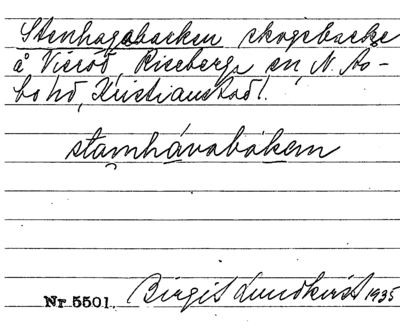 Stenhagabacken skogsbacke
å Visröd, Riseberga sn, N. Ås-
bo hd, Kristianstads l.
stamhávabákem
Nr 5501. Birgit Lundkvist 1935